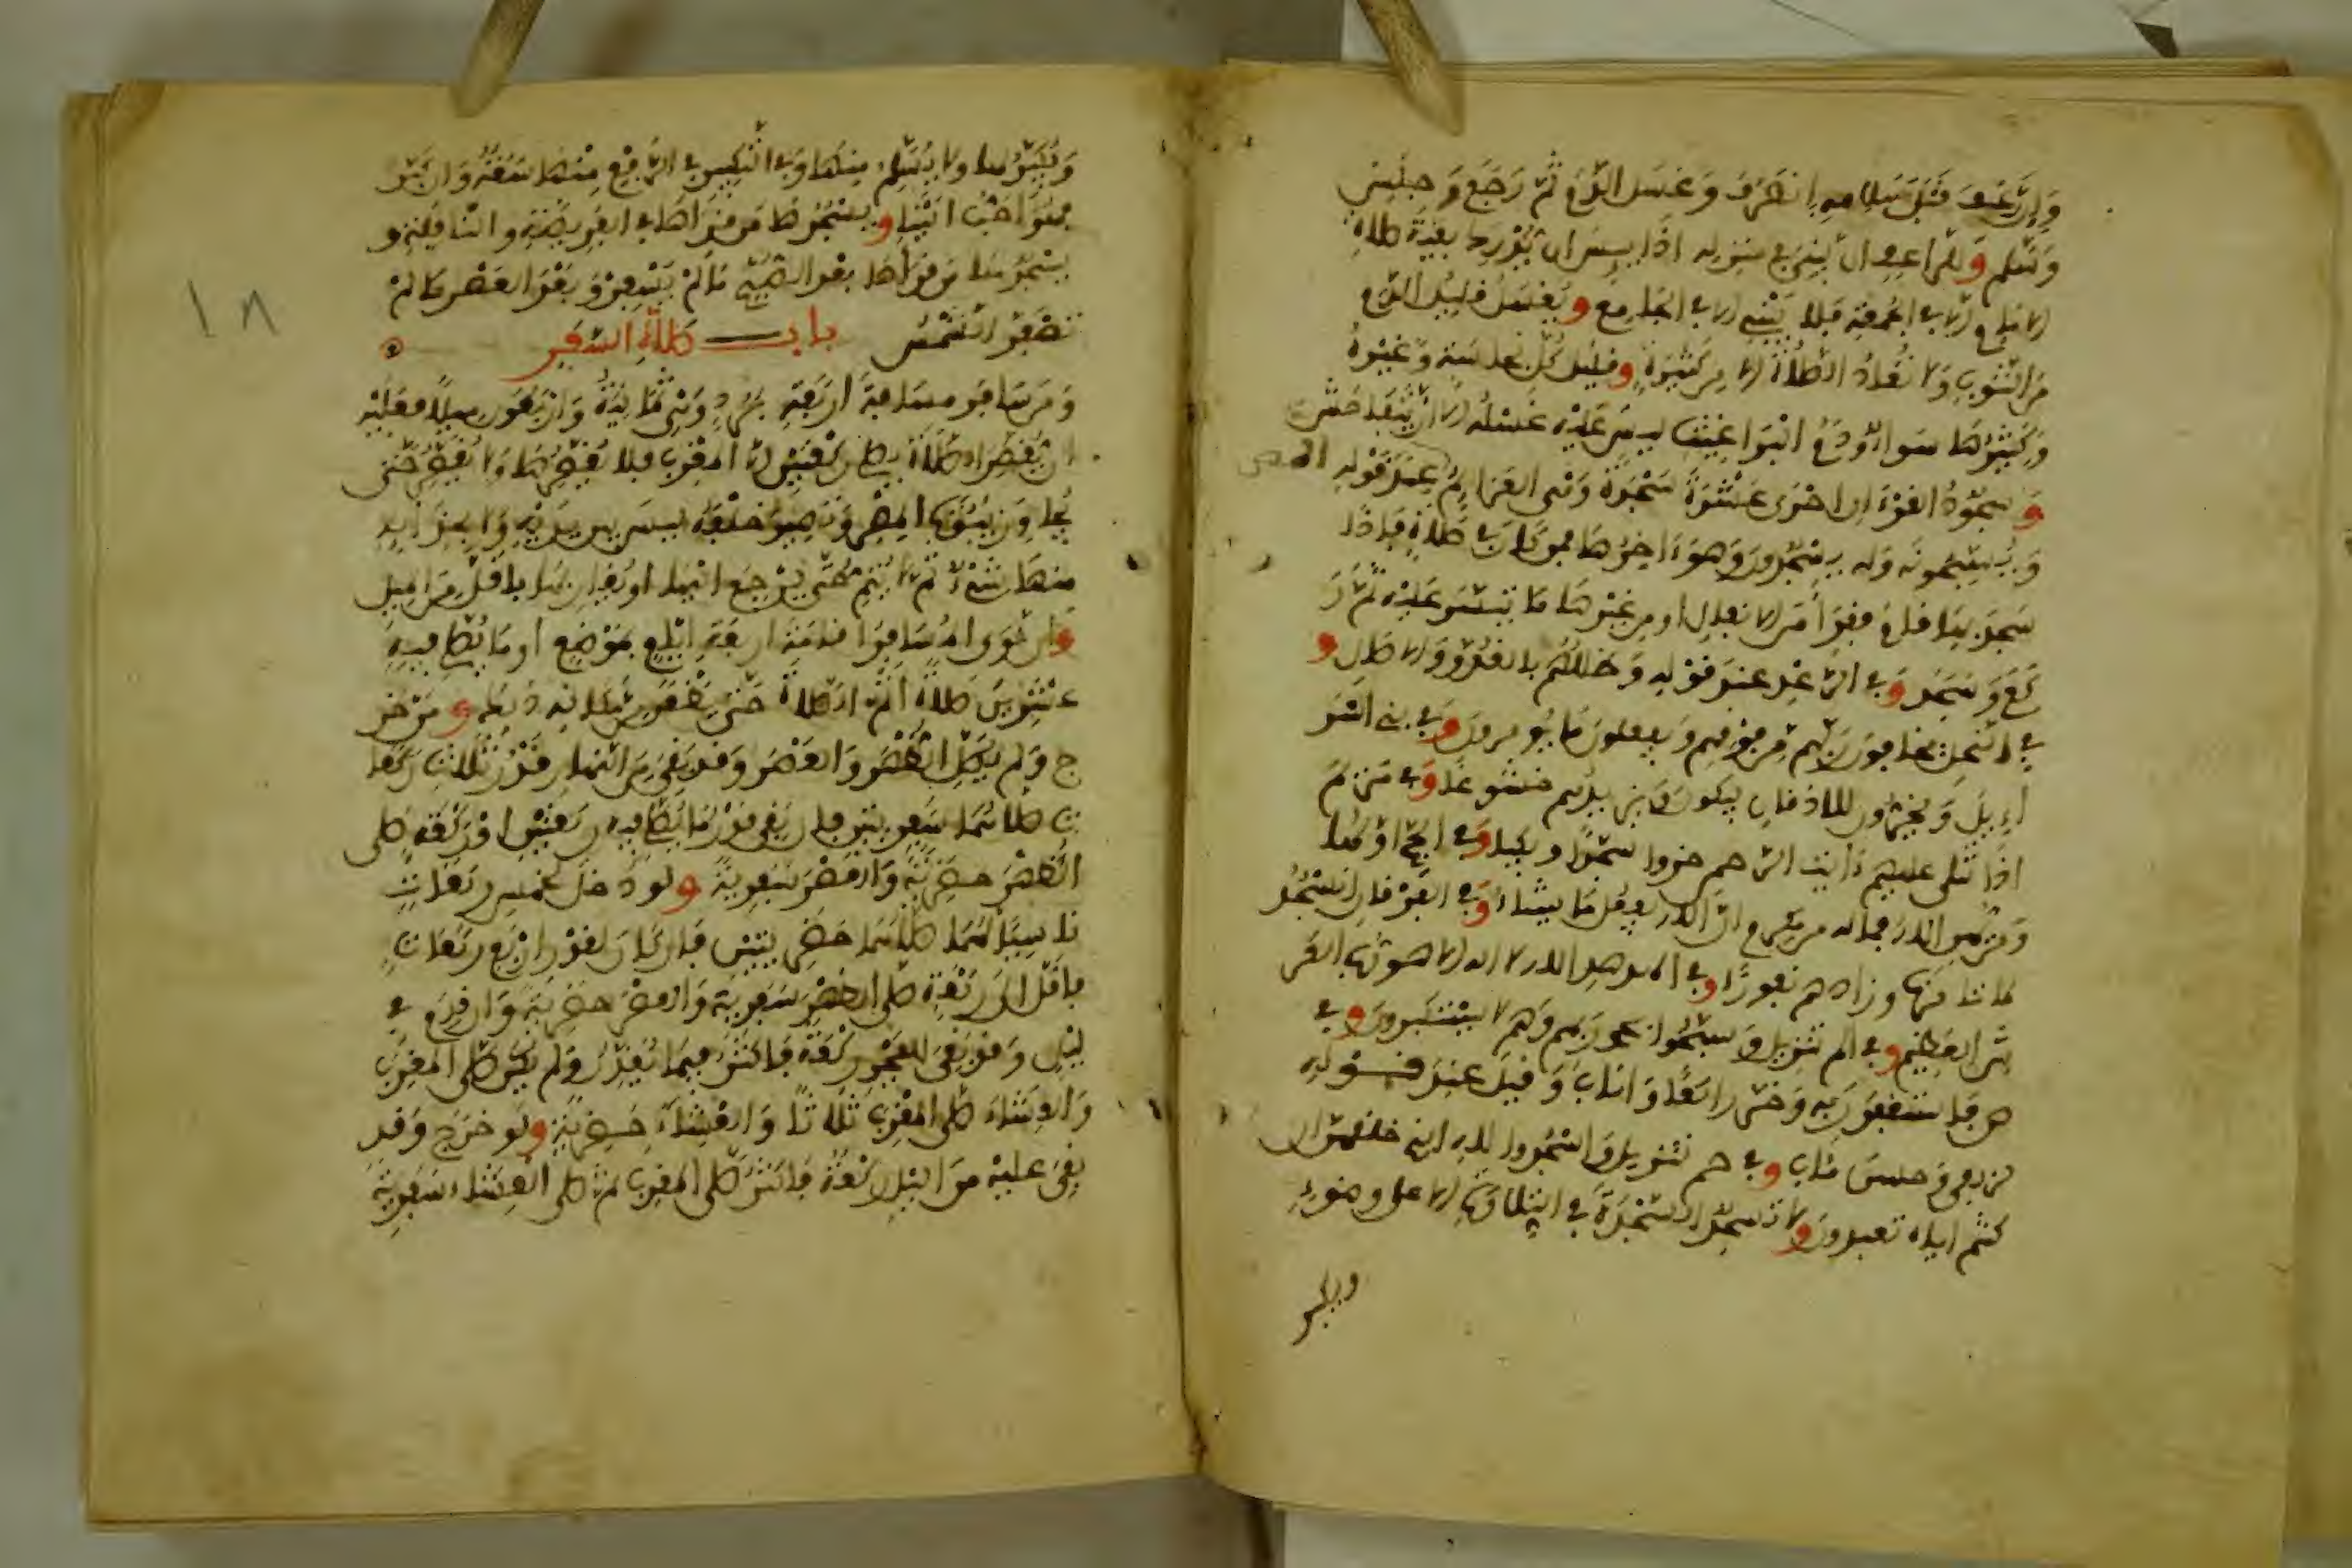 وإن رعف قبل سلامه انصرف وغسل الدم ثم رجع وجلس
وسلم وللراعف ان يبني في منزله اذا يئس ان يدرك بقية صلاة
الامام الا في الجمعة فلا يبني الا في الجامع ويغسل قليل الدم
من الثوب ولا تعاد الصلاة الا من كثيره وقليل كل نجاسة وغيره
وكثيرها سواء ودم البراغيث ليس عليه غسله الا ان يتفاحش
وسجود القرءان احدى عشرة سجدة وهي العزائم عند قوله المص
ويسبحونه وله يسجدون وهو ءاخرها فمن كان في صلاة فإذا
سجدها قام فقرأ من الانفال او من غيرها ما تيسر عليه ثم ر
كع وسجد وفي الرعد عند قوله وظللهم بالغدو والاصال و
في النحل يخافون ربهم من فوقهم ويفعلون ما يومرون وفي بني اسر
اءيل ويخرون للاذقان يبكون ويزيدهم خشوعا وفي مريم
اذا تتلى عليهم ءايت الرحمن خروا سجدا وبكيا وفي الحج اولها
ومن يهن الله فماله من مكرم ان الله يفعل ما يشاء وفي الفرقان انسجد
لما تامرنا وزادهم نفورا وفي الهدهد الله لا اله الا هو رب العر
ش العظيم وفي الم تنزيل وسبحوا بحمد ربهم وهم لا يستكبرون وفي
ص فاستغفر ربه وخر راكعا واناب وقيل عند قوله
لزلفى وحسن مئاب وفي حم تنزيل واسجدوا لله الذي خلقهن ان
كنتم اياه تعبدون ولا تسجد السجدة في التلاوة الا على وضوء
ويكبر
ويكبر لها ولا يسلم منها وفي التكبير في الرفع منها سعة وان كبر
فهو احب الينا ويسجدها من قراها في الفريضة والنافلة و
يسجدها من قراها بعد الصبح ما لم يسفر وبعد العصر ما لم
تصفر الشمس باب صلاة السفر
ومن سافر مسافة اربعة برد وهي ثمانية واربعون ميلا فعليه
ان يقصر الصلاة فيصلي ركعتين الا المغرب فلا يقصرها ولا يقصر حتى
يجاوز بيوت المصر وتصير خلفه ليس بين يديه ولا بحذائه
منها شيء ثم لا يتم حتى يرجع اليها او يقاربها باقل من الميل
وان نوى المسافر اقامة اربعة ايام بموضع او ما يصلي فيه
عشرين صلاة اتم الصلاة حتى يظعن من مكانه ذلك ومن خر
ج ولم يصل الظهر والعصر وقد بقي من النهار قدر ثلاث ركعا
ت صلاهما سفريتين فان بقي قدر ما يصلي فيه ركعتين او ركعة صلى
الظهر حضرية والعصر سفرية ولو دخل لخمس ركعات
ناسيا لهما صلاهما حضريتين فان كان لقدر اربع ركعات
فاقل الى ركعة صلى الظهر سفرية والعصر حضرية وان قدم في
ليل وقد بقي للفجر ركعة فاكثر فيما يقدر ولم يكن صلى المغرب
والعشاء صلى المغرب ثلاثا والعشاء حضرية ولو خرج وقد
بقي عليه من الليل ركعة فاكثر صلى المغرب ثم صلى العشاء سفرية
١٨